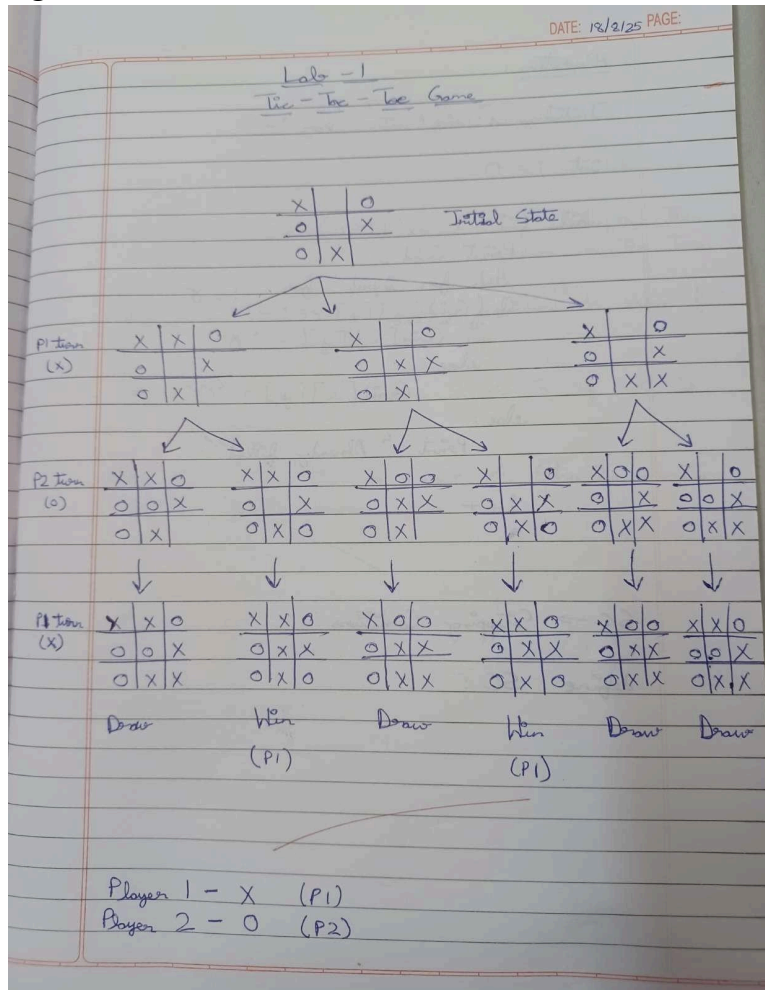 DATE: 18/2/25 PAGE:
Lab - 1
Tic - Tac - Toe Game
X | | O
O | | X
O | X |
Initial State
P1 turn
(X)
X | X | O
O | | X
O | X |
X | | O
O | X | X
O | X |
X | | O
O | | X
O | X | X
P2 turn
(O)
X | X | O
O | O | X
O | X |
X | X | O
O | | X
O | X | O
X | O | O
O | X | X
O | X |
X | | O
O | X | X
O | X | O
X | O | O
O | | X
O | X | X
X | | O
O | O | X
O | X | X
P1 turn
(X)
X | X | O
O | O | X
O | X | X
X | X | O
O | X | X
O | X | O
X | O | O
O | X | X
O | X | X
X | X | O
O | X | X
O | X | O
X | O | O
O | X | X
O | X | X
X | X | O
O | O | X
O | X | X
Draw Win Draw Win Draw Draw
(P1) (P1)
Player 1 - X (P1)
Player 2 - O (P2)